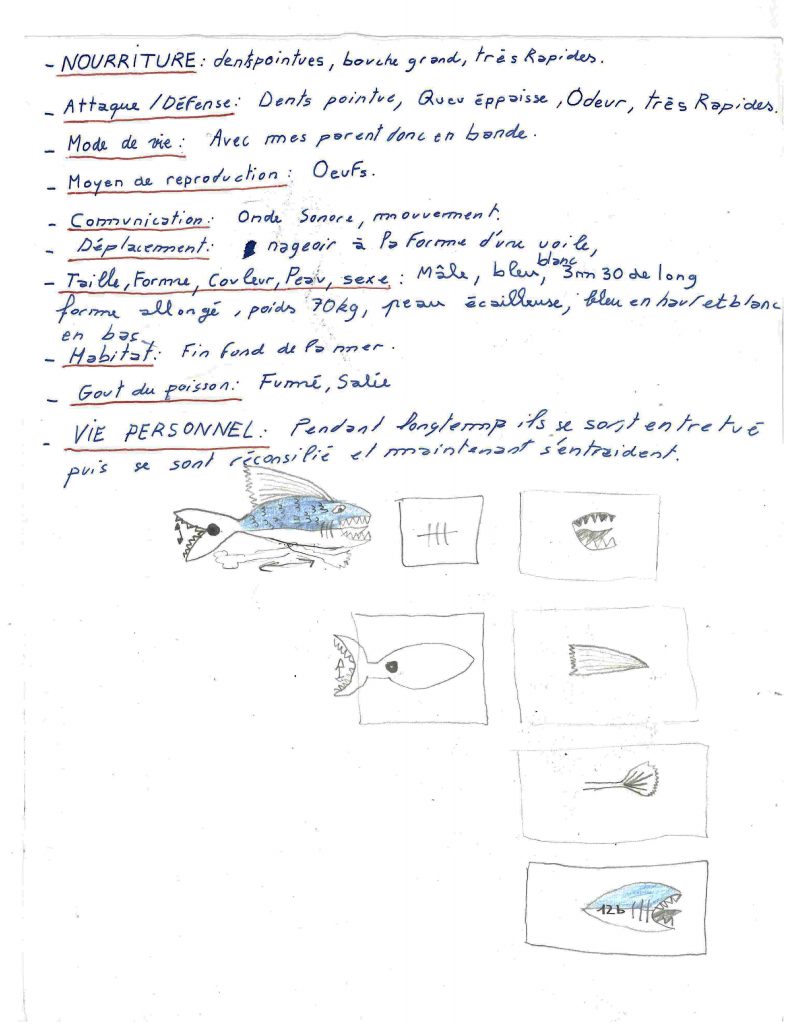 - NOURRITURE : dentspointues, bouche grand, très Rapides.
- Attaque / Défense : Dents pointue, Queu éppaisse, Odeur, très Rapides.
- Mode de vie : Avec mes parent donc en bande.
- Moyen de reproduction : Oeufs.
- Comunication : Onde Sonore, mouvement.
- Déplacement : nageoir à la Forme d'une voile,
- Taille, Forme, Couleur, Peau, sexe : Mâle, bleu, blanc, 3m 30 de long
forme allongé, poids 70kg, peau écailleuse, bleu en haut et blanc
en bas.
- Habitat : Fin fond de la mer.
- Gout du poisson : Fumé, Salée
- VIE PERSONNEL : Pendant longtemp ils se sont entretué
puis se sont réconsilié et maintenant s'entraident.
12b